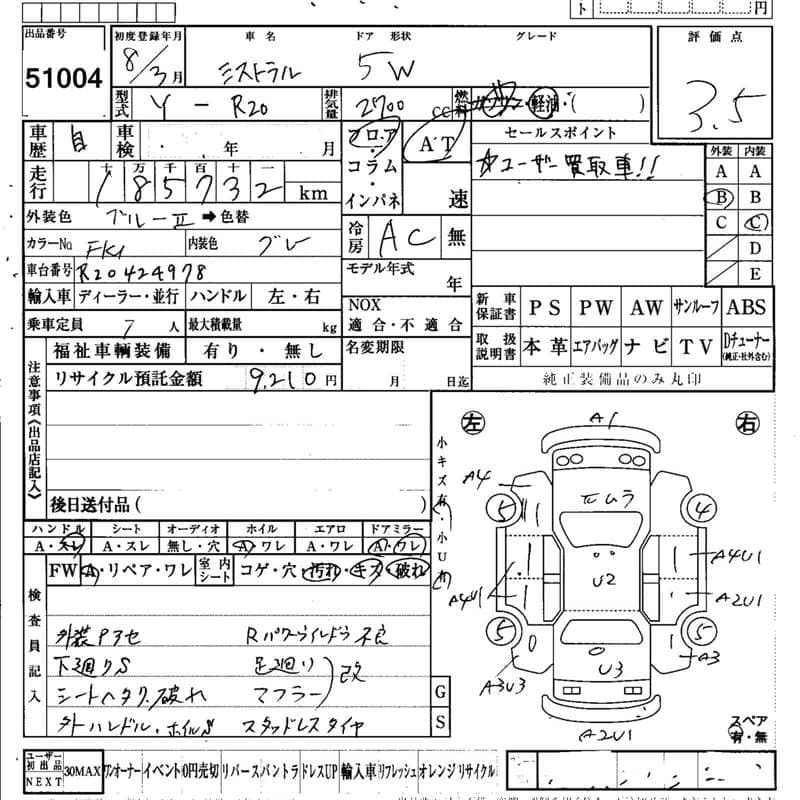 円
出品番号 初度登録年月 車名 ドア 形状 グレード 評価点
51004 8/3月 ミストラル 5W 3.5
型式 Y-R20 排気量 2700 CC 燃料 ・軽油・( )
車歴 自 車検 年 月 フロア・コラム・インパネ AT 速 セールスポイント 外装 内装
☆ユーザー買取車!! A A
走行 十 万 千 百 十 一 B B
185732 km C C
外装色 ブルーII ➡色替 冷房 AC 無 D
カラーNo FK1 内装色 グレー E
車台番号 R20424978 モデル年式 年
輸入車 ディーラー・並行 ハンドル 左・右 NOX 適合・不適合 新車保証書 PS PW AW サンルーフ ABS
乗車定員 7人 最大積載量 kg 取扱説明書 本革 エアバッグ ナビ TV Dチューナー (純正・社外含む)
福祉車輌装備 有り・無し 名変期限 月 日迄 純正装備品のみ丸印
リサイクル預託金額 9,210円
注意事項《出品店記入》
後日送付品( )
左 右
小キズ有・小U有
A1
A4
5 4
元ムラ
A4U1
U2
A4U1 A2U1
5 5
0
A3U3 U3 A3
A2U1
スペア 有・無
ハンドル シート オーディオ ホイル エアロ ドアミラー
A・スレ A・スレ 無し・穴 A・ワレ A・ワレ A・ワレ
FW A・リペア・ワレ 室内シート コゲ・穴・汚れ・キズ・破れ
検査員記入
外装Pアセ Rパワーウインドウ不良
下廻りS 足廻り 改
シートヘタリ・破れ マフラー
外ハンドル・ホイルS スタッドレスタイヤ
G
S
ユーザー初出品 NEXT 30MAX ワンオーナー イベント 0円売切 リバース バントラ ドレスUP 輸入車 リフレッシュ オレンジ リサイクル